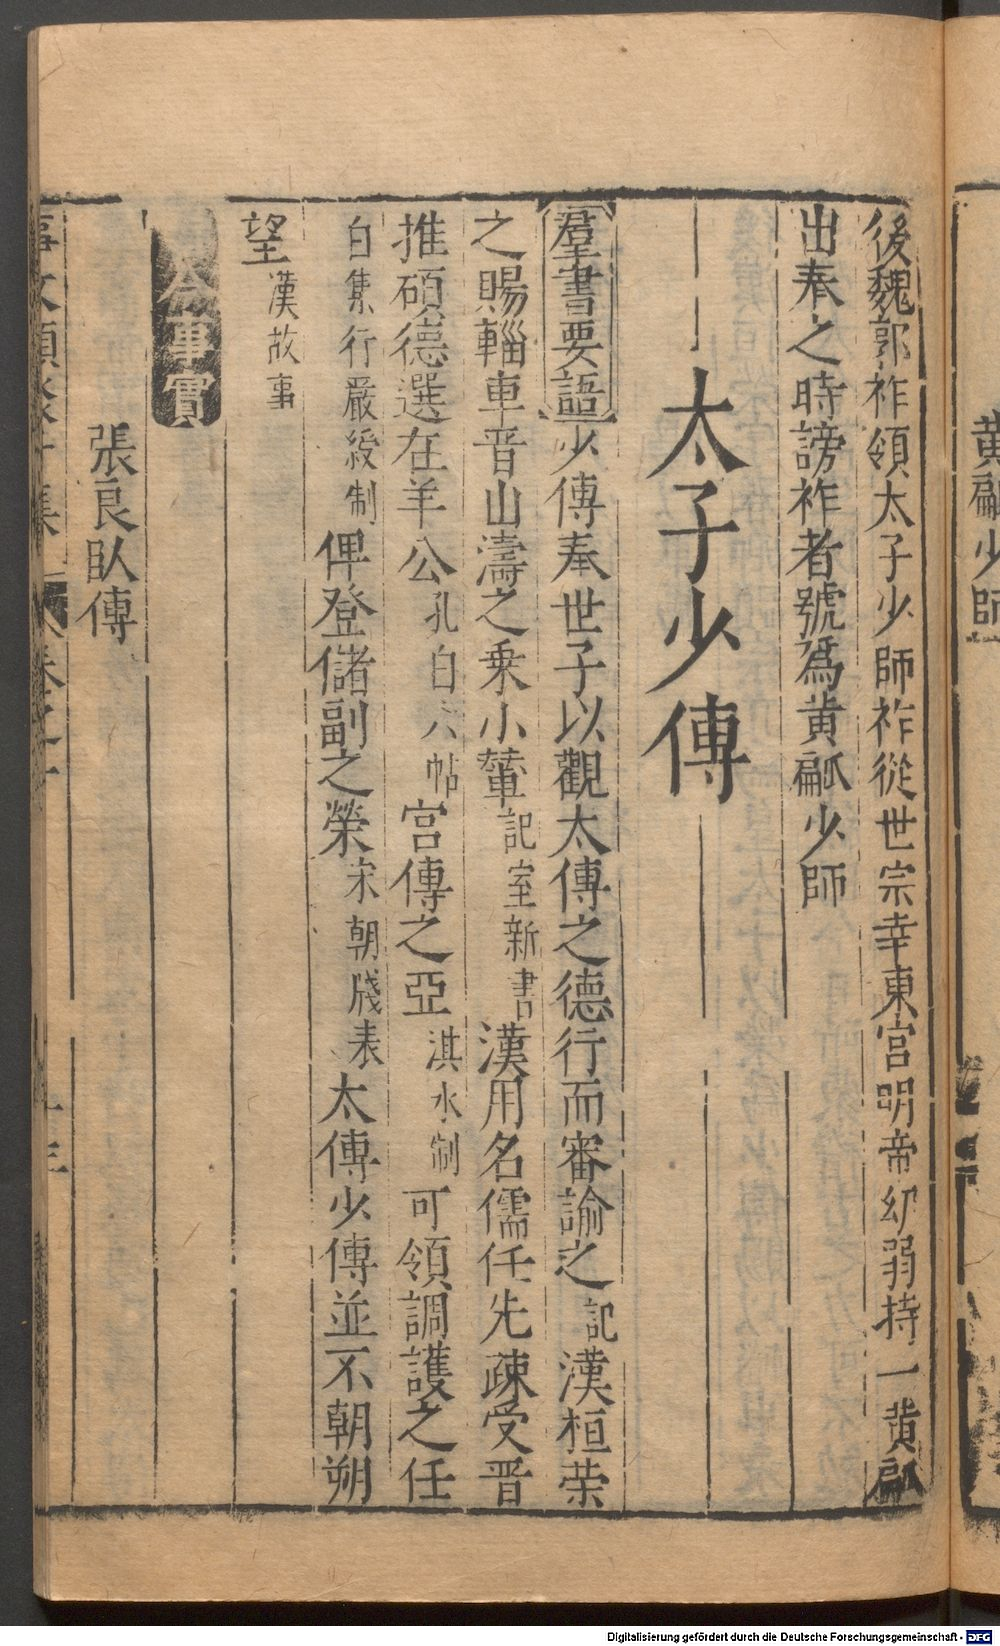 黄㼐少師
後魏郭祚領太子少師祚從世宗幸東宫明帝幼弱持一黄㼐
出奉之時謗祚者號爲黄㼐少師
太子少傅
羣書要語少傅奉世子以觀太傅之德行而審諭之記漢桓荣
之賜輜車晋山濤之乘小輦記室新書漢用名儒任先疎受晋
推碩德選在羊公孔白六帖宫傅之亞淇水制可領調護之任
白集行嚴綬制俾登儲副之榮宋朝牋表太傅少傅並不朝朔
望漢故事
事實
張良卧傅